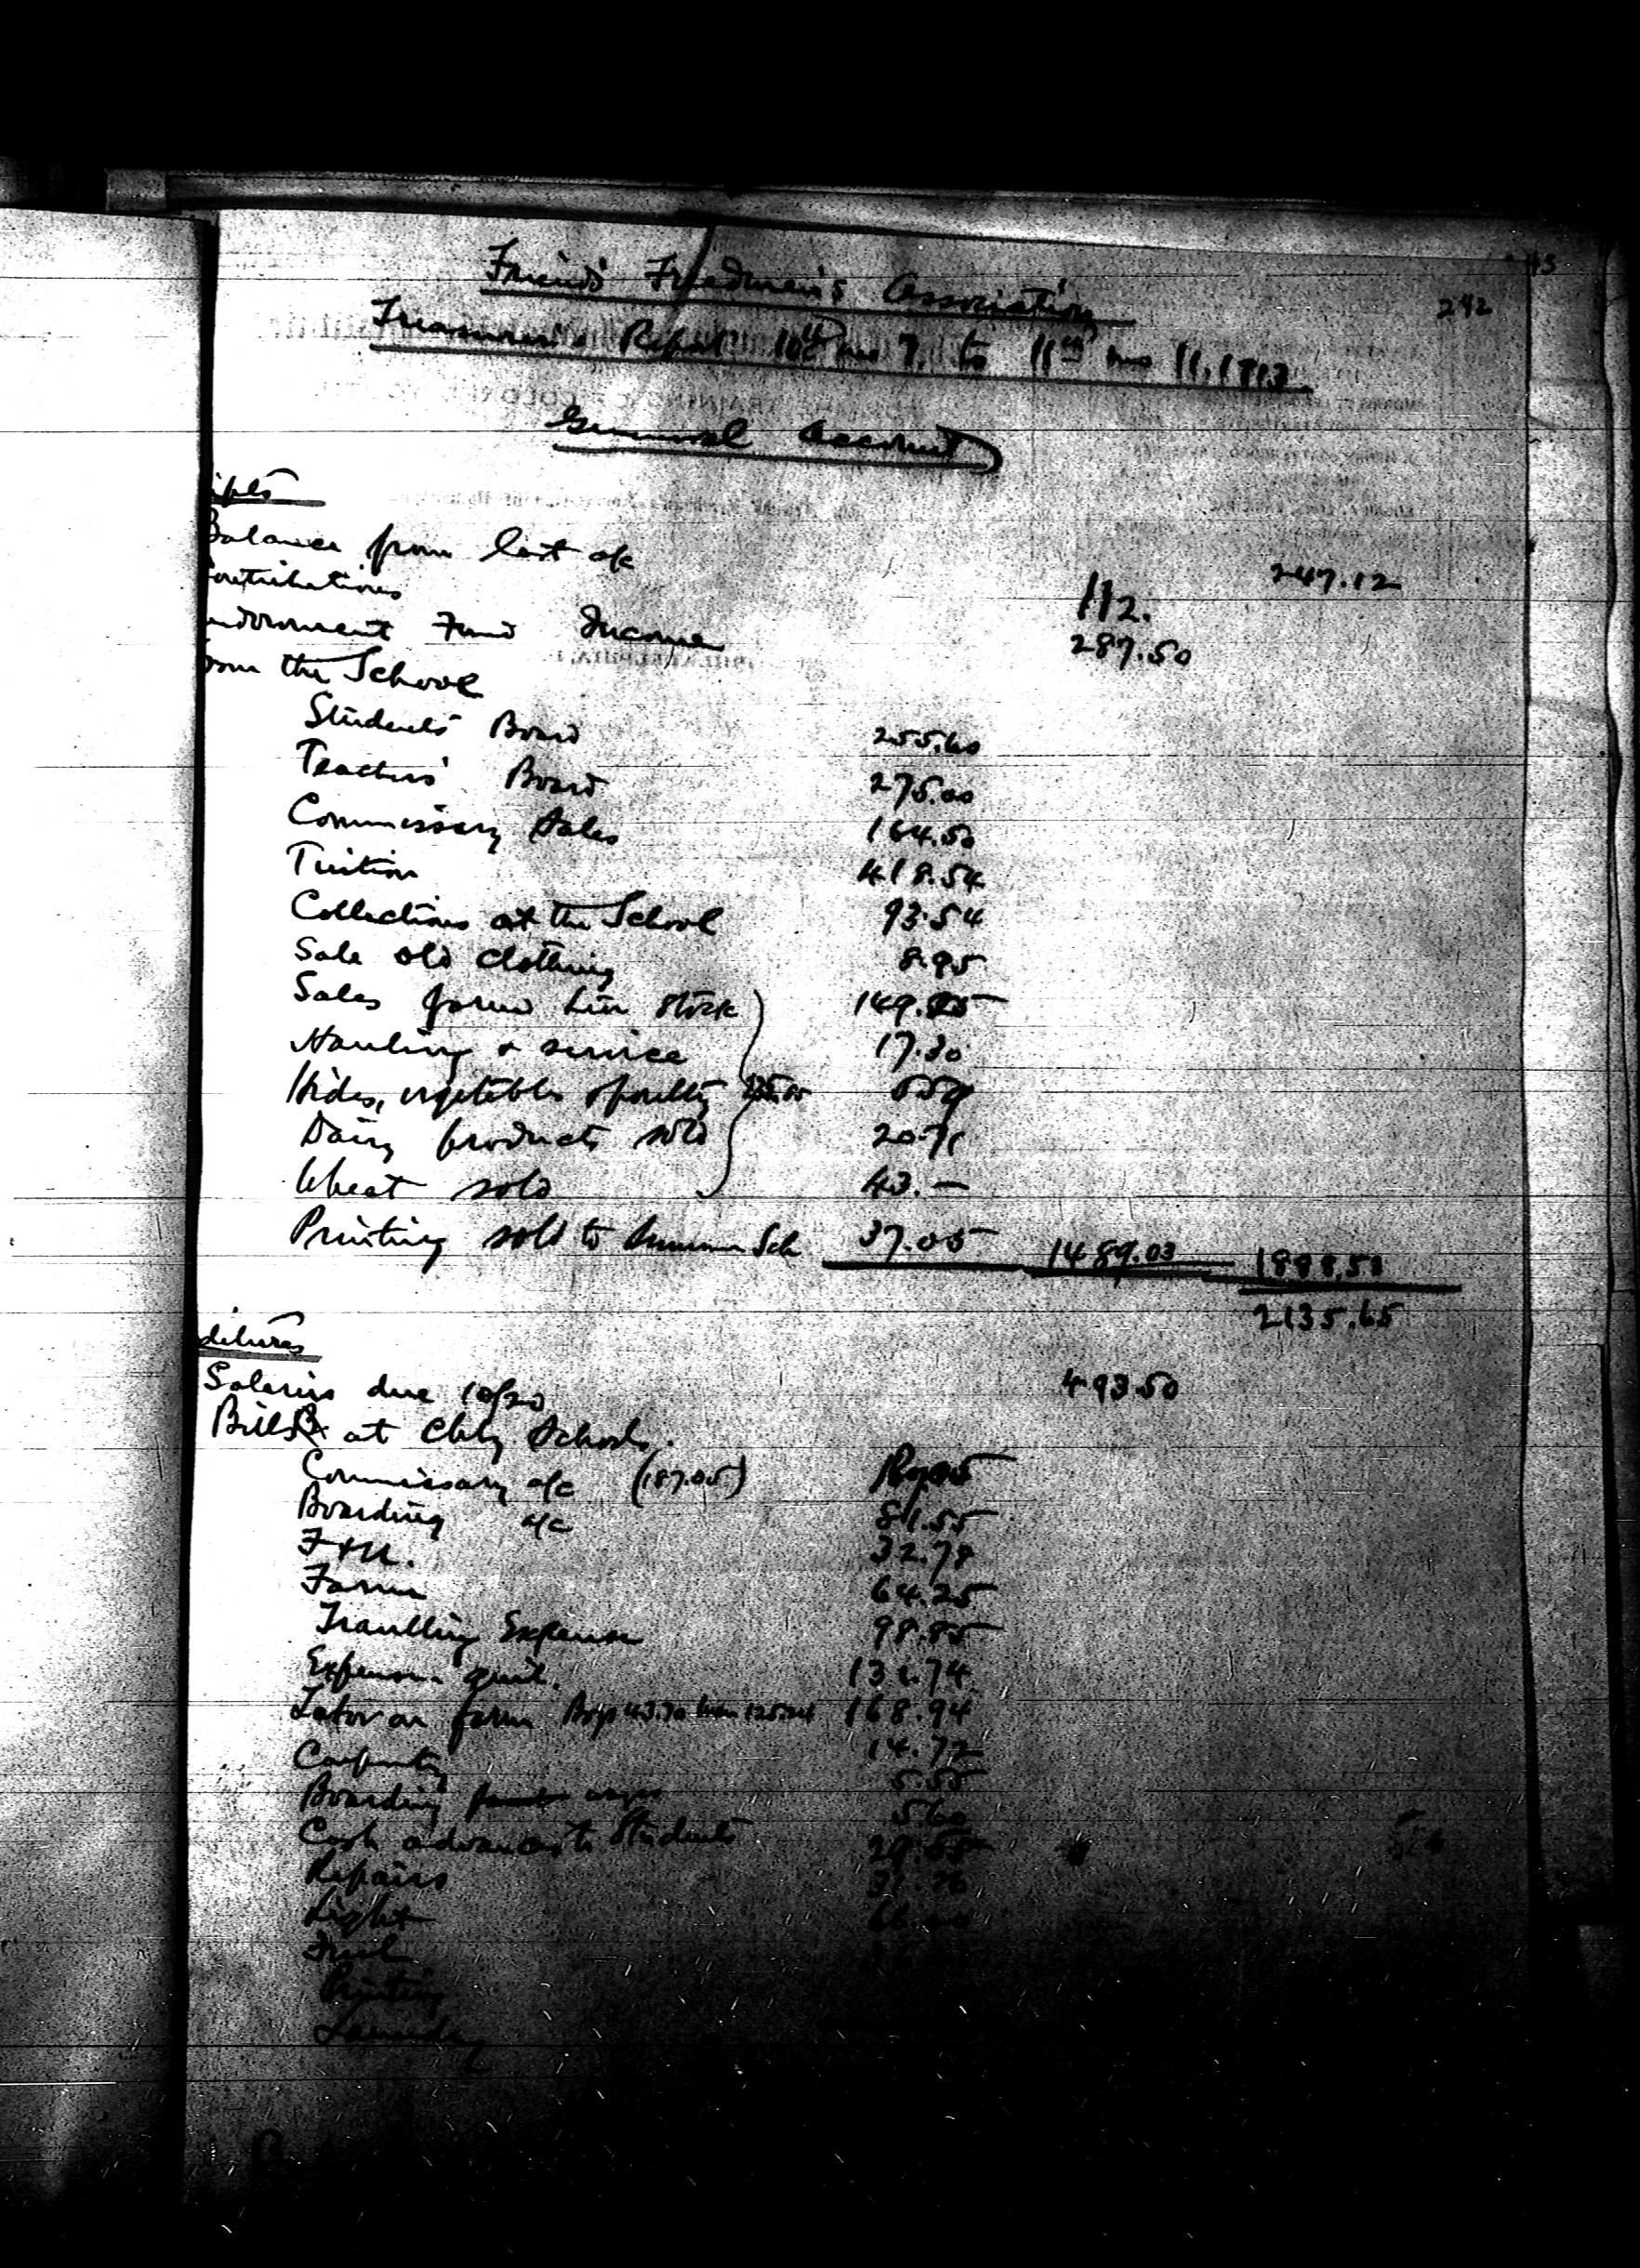 43
242
Friends' Freedmen's Association
Treasurer's Report 10th mo 7, to 11th mo 11, 1913
General Account
ipts
Balance from last a/c 247.12
ontributions 112.
ndowment Fund Income 287.50
rom the School
Students' Board 255.60
Teachers' Board 275.00
Commissary Sales 164.50
Tuition 418.54
Collections at the School 93.54
Sale old clothing 8.95
Sales farm Live Stock 149.25
Hauling & service 17.30
Hides, vegetables & poultry 5.59
Dairy products sold 20.71
Wheat sold 43.—
Printing sold to Summer Sch 37.05 1489.03 1888.53
2135.65
ditures
Salaries due 10/20 493.50
Bills at Chbg School.
Commissary a/c (187.05)
Boarding a/c 81.55
F & U. 32.78
Farm 64.25
Travelling Expense 98.85
Expense genl. 131.74
Labor on farm Boys 43.70 168.94
Carpentry 14.72
Boarding wages 5.55
Cash advances to Students 5.60
Repairs 29.55
Light 31.76
Fuel
Printing
Laundry